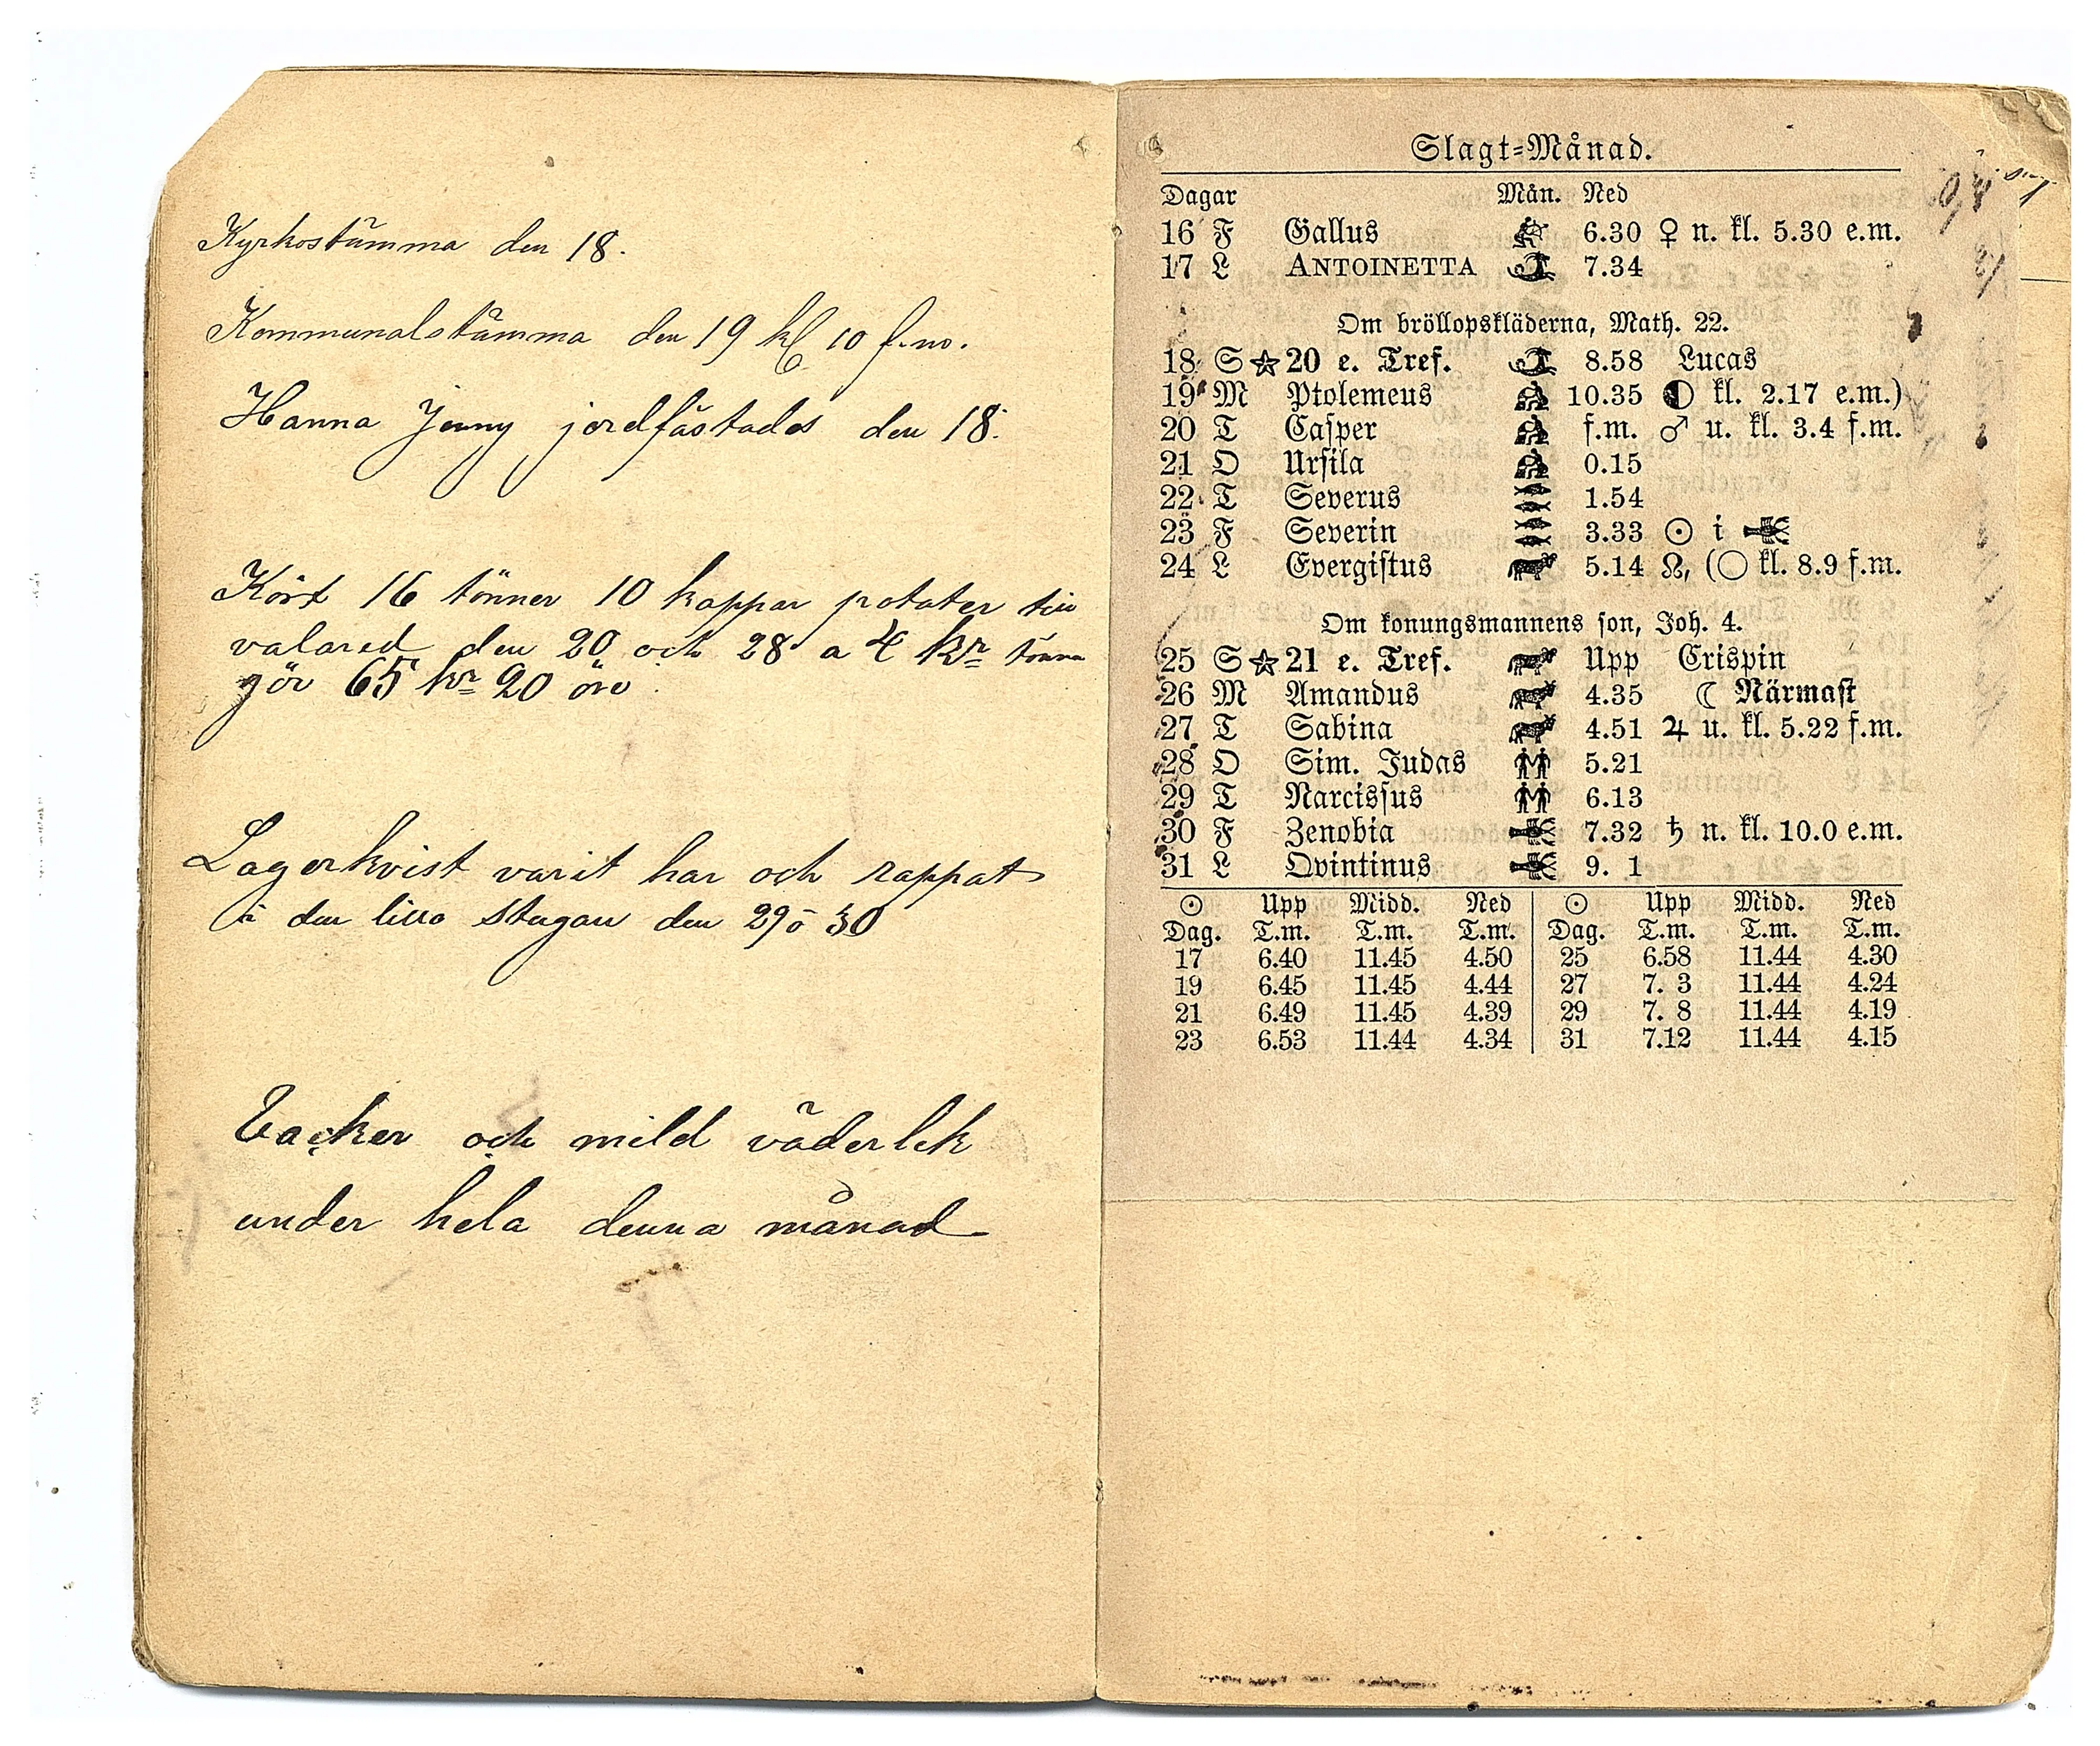 Kyrkostämma den 18.
Kommunalstämma den 19 kl 10 f.m.
Hanna Jenny jordfästades den 18.
Kört 16 tönner 10 kappar potater till
valared den 20 och 28 a 4 kr tönna
gör 65 kr 20 öre
Lagerkvist varit har och rappat
i den lilla stugan den 29 o 30
Vacker och mild väderlek
under hela denna månad
Slagt=Månad.
Dagar Mån. Ned
16 F Gallus 6.30 ♀ n. kl. 5.30 e.m.
17 L ANTOINETTA 7.34
Om bröllopskläderna, Math. 22.
18 S ☆ 20 e. Tref. 8.58 Lucas
19 M Ptolemeus 10.35 ◐ kl. 2.17 e.m.)
20 T Casper f.m. ♂ u. kl. 3.4 f.m.
21 O Ursila 0.15
22 T Severus 1.54
23 F Severin 3.33 ☉ i
24 L Evergistus 5.14 ☊, (○ kl. 8.9 f.m.
Om konungsmannens son, Joh. 4.
25 S ☆ 21 e. Tref. Upp Crispin
26 M Amandus 4.35 ☾ Närmast
27 T Sabina 4.51 ♃ u. kl. 5.22 f.m.
28 O Sim. Judas 5.21
29 T Narcissus 6.13
30 F Zenobia 7.32 ♄ n. kl. 10.0 e.m.
31 L Qvintinus 9. 1
☉ Upp Midd. Ned ☉ Upp Midd. Ned
Dag. T.m. T.m. T.m. Dag. T.m. T.m. T.m.
17 6.40 11.45 4.50 25 6.58 11.44 4.30
19 6.45 11.45 4.44 27 7. 3 11.44 4.24
21 6.49 11.45 4.39 29 7. 8 11.44 4.19
23 6.53 11.44 4.34 31 7.12 11.44 4.15